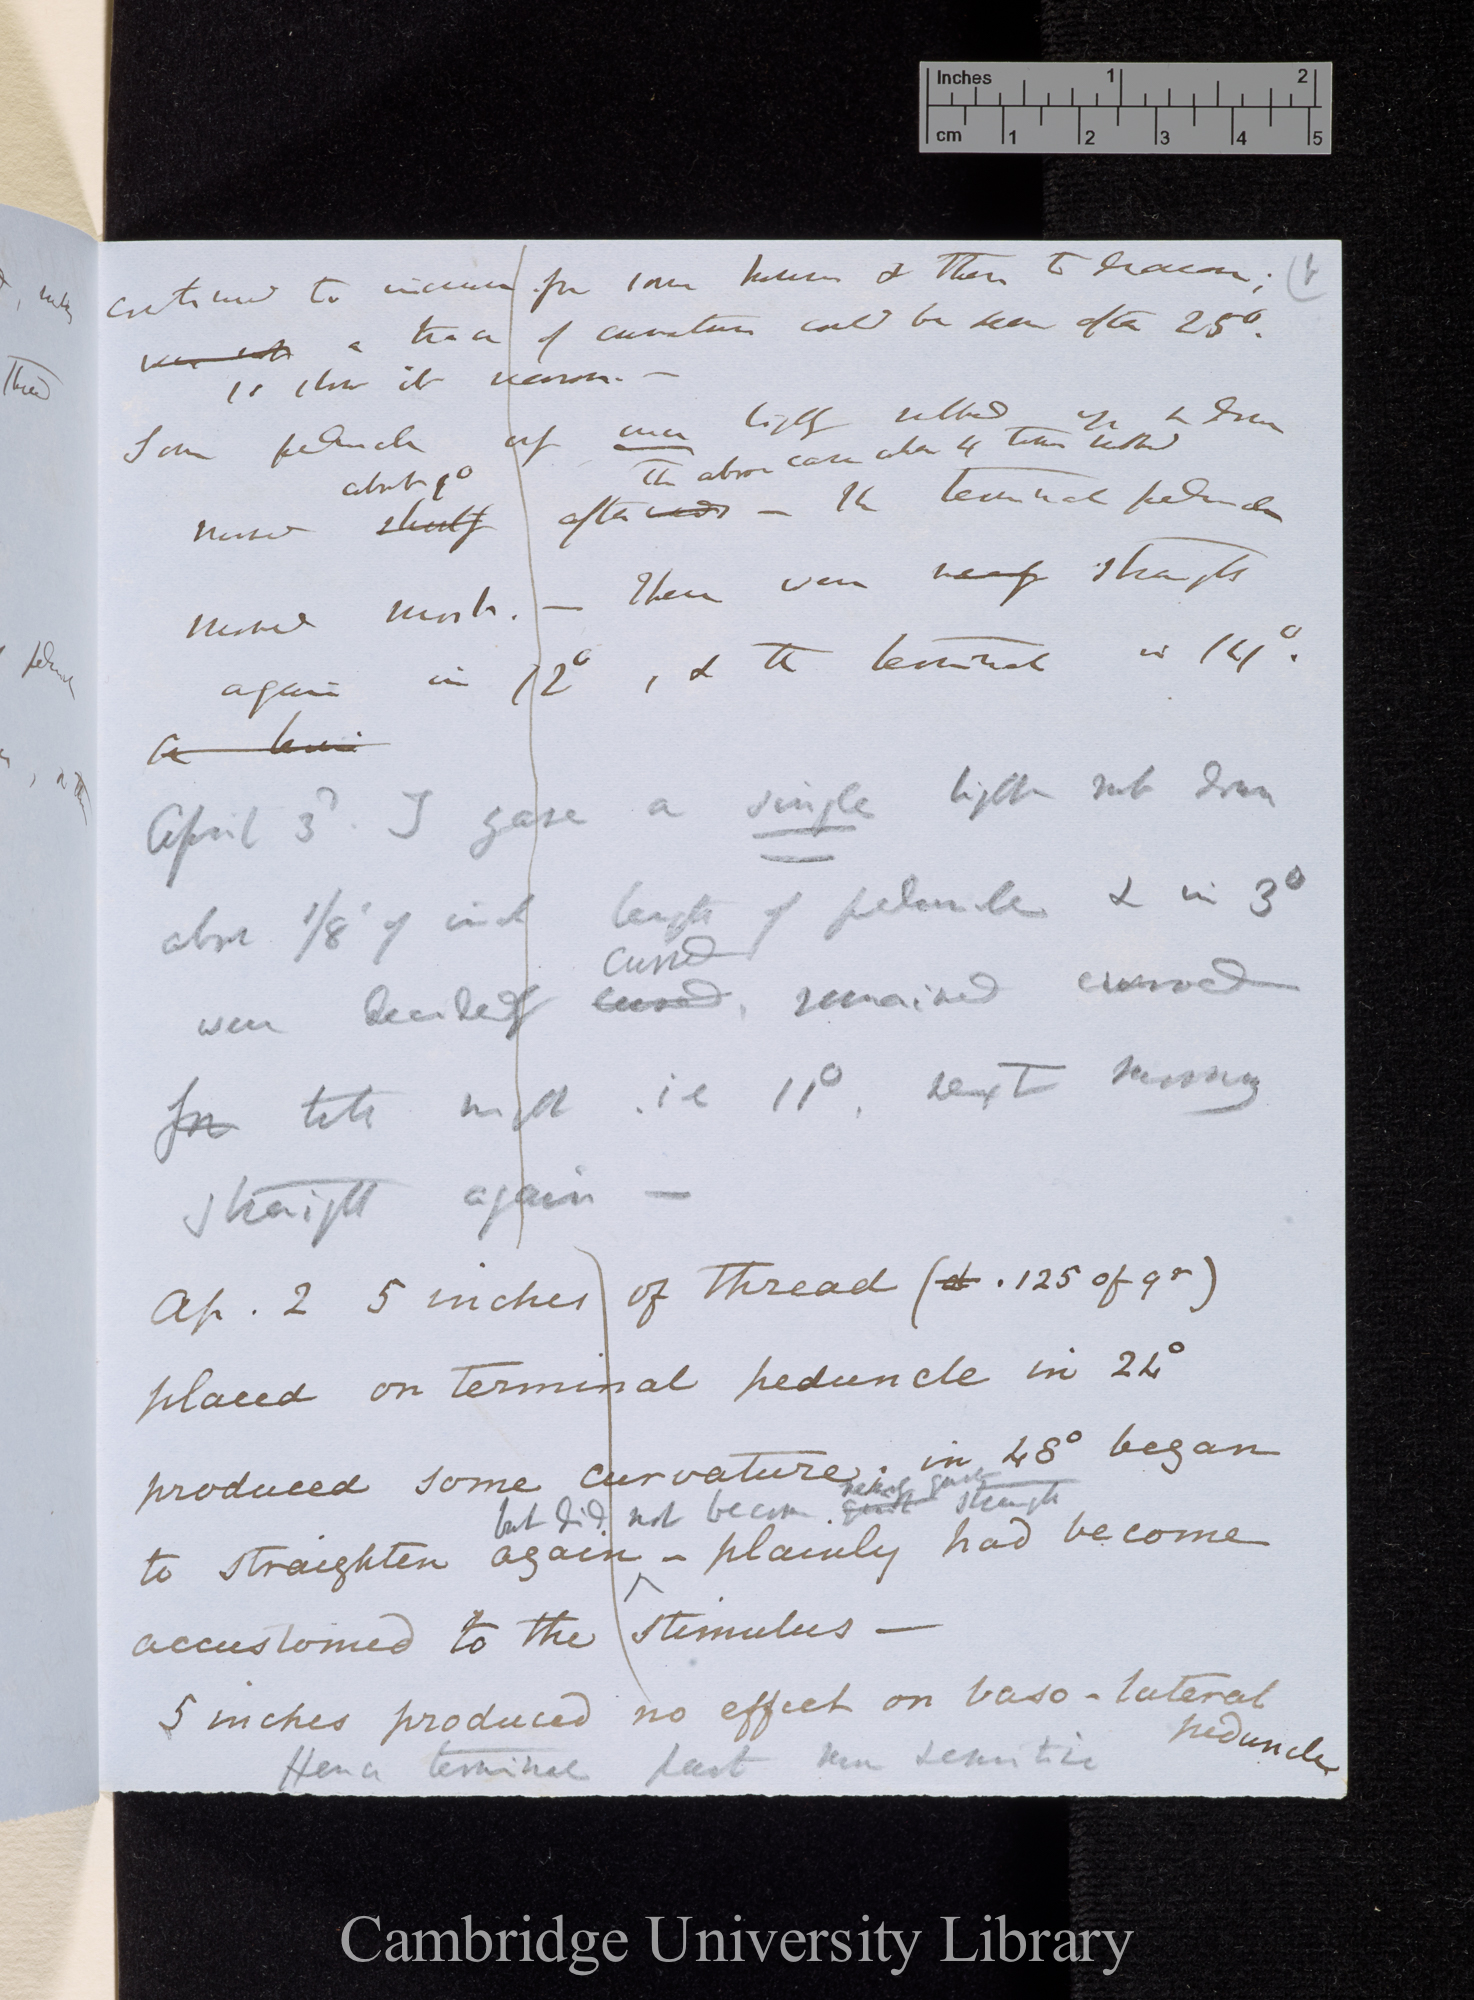 Inches 1 2
cm 1 2 3 4 5
continued to increase for some hours & then to decrease;
a trace of curvature could be seen after 25°.
so slow is it
Some peduncles once lightly rubbed up & down
about 9° The above case when 4 times rubbed
moved afterwards — The terminal peduncle
moved most. — These were nearly straight
again in 12°, & the terminal in 14°.
April 3d. I gave a single light rub down
above 1/8 of inch length of peduncle & in 3°
curved
were decidedly curved, remained curved
for late night i.e 11°, next morning
straight again —
Ap. 2 5 inches of Thread (.125 of gr)
placed on terminal peduncle in 24°
produced some curvature. in 48° began
but did not become quite straight
to straighten again — plainly had become
accustomed to the stimulus —
5 inches produced no effect on baso-lateral
peduncle
Hence terminal part more sensitive
Cambridge University Library